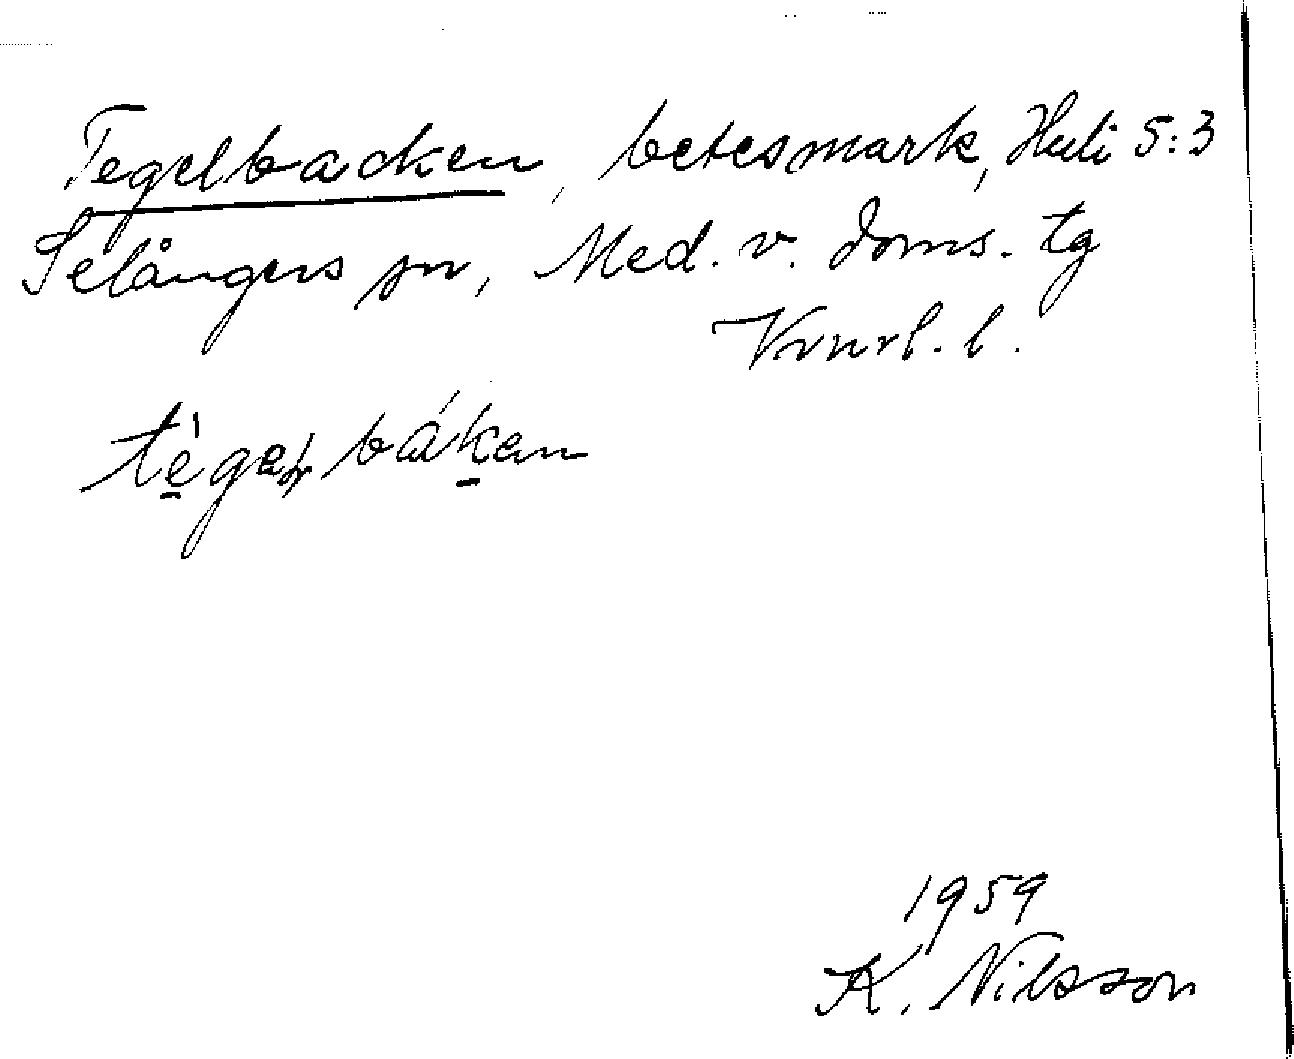 Tegelbacken, betesmark, Huli 5:3
Selångers sn, Med. v. doms. tg
Vrnrl. l.
1959
K. Nilsson